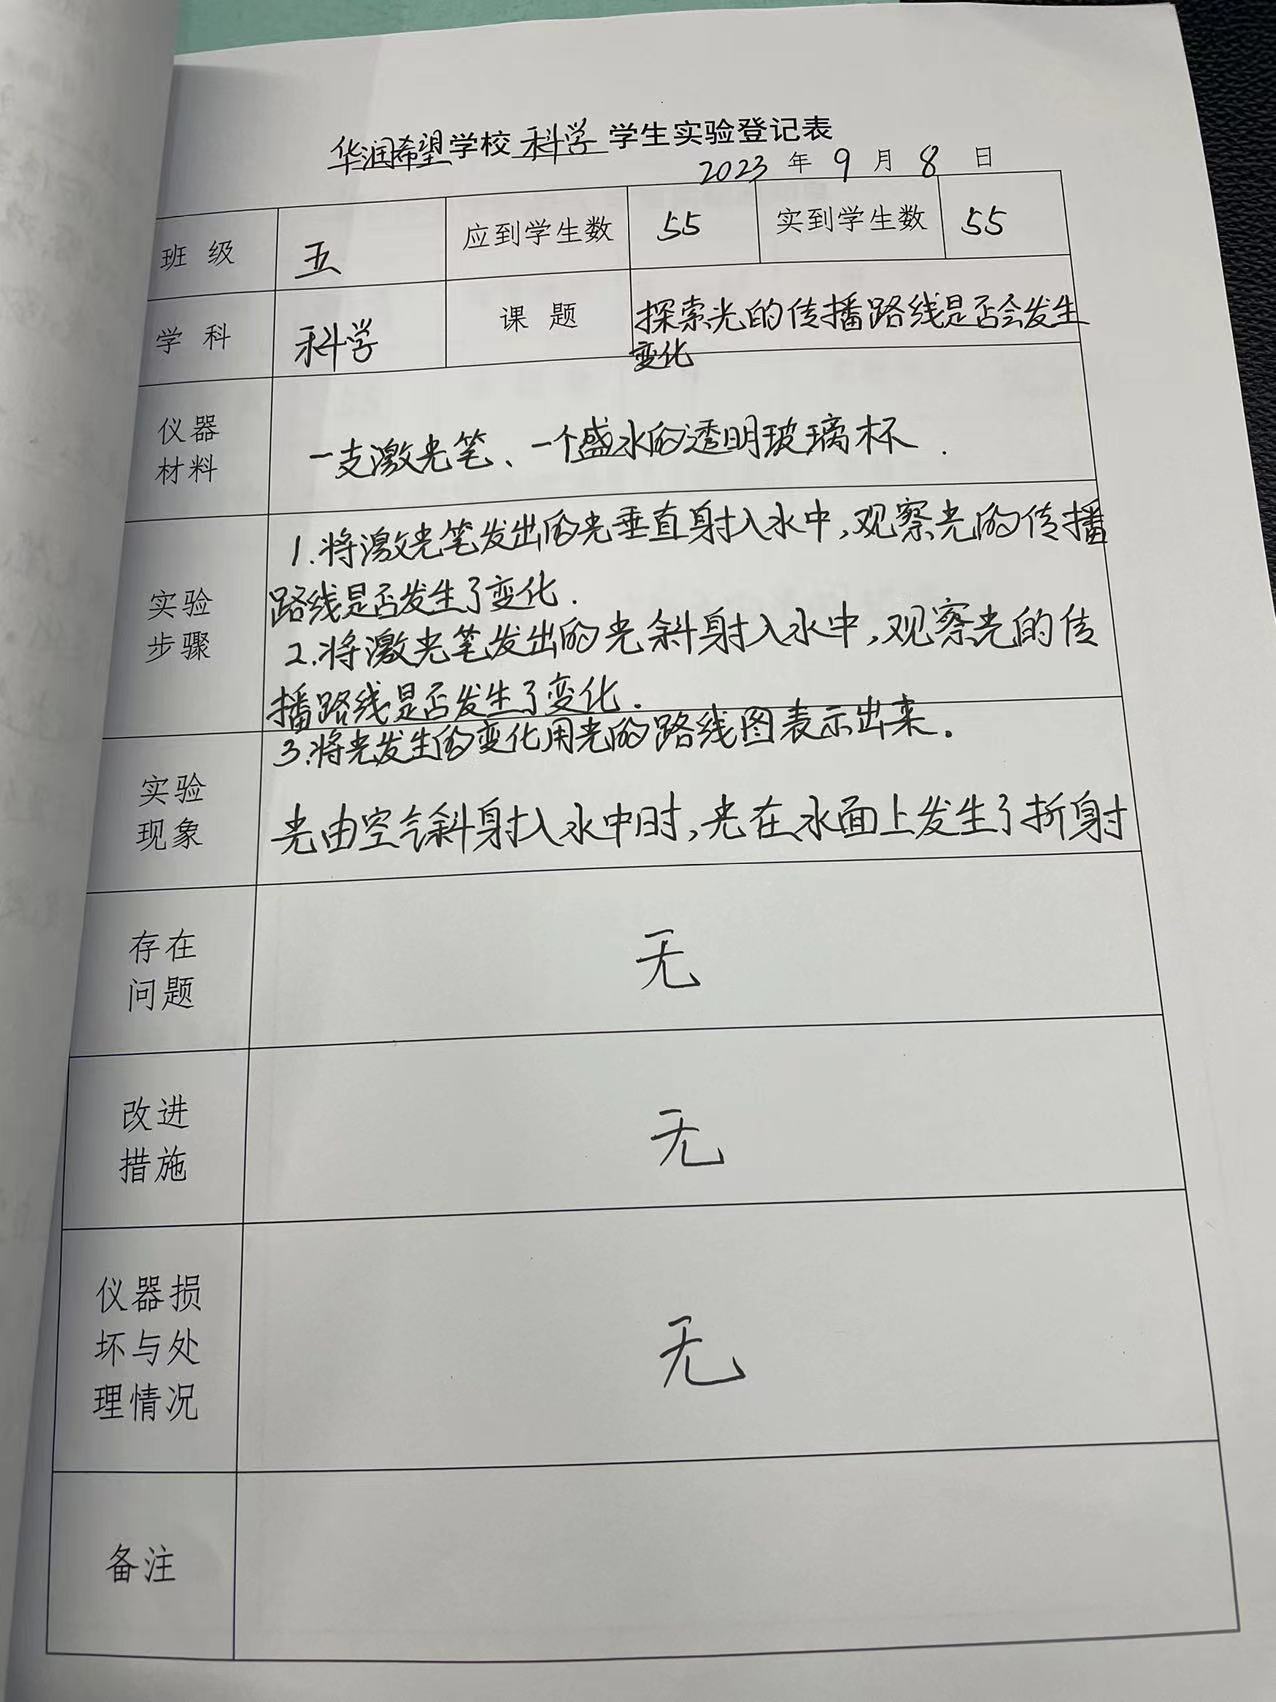 华润希望学校 科学 学生实验登记表
2023 年 9 月 8 日
班 级 五 应到学生数 55 实到学生数 55
学 科 科学 课 题 探索光的传播路线是否会发生
变化
仪器
材料
一支激光笔、一个盛水的透明玻璃杯.
实验
步骤
1.将激光笔发出的光垂直射入水中,观察光的传播
路线是否发生了变化.
2.将激光笔发出的光斜射入水中,观察光的传
播路线是否发生了变化.
3.将光发生的变化用光的路线图表示出来.
实验
现象
光由空气斜射入水中时,光在水面上发生了折射
存在
问题
无
改进
措施
无
仪器损
坏与处
理情况
无
备注